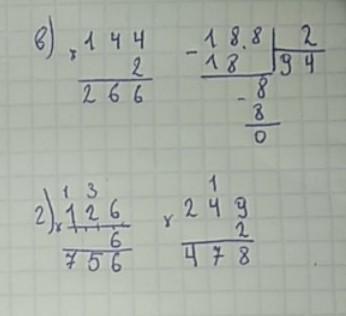 в) × 144 - 18.8 | 2
2 18 | 94
266 - 8
8
0
1 3 1
г) × 126 × 249
6 2
756 478